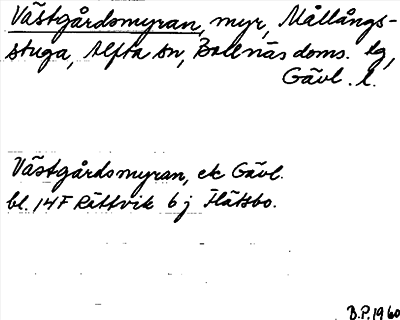 Västgårdsmyran, myr, Mållångs-
stuga, Alfta sn, Bollnäs doms. lg,
Gävl. l.
Västgårdsmyran, ek Gävl.
bl. 14F Rättvik 6j Flätsbo.
B.P. 1960